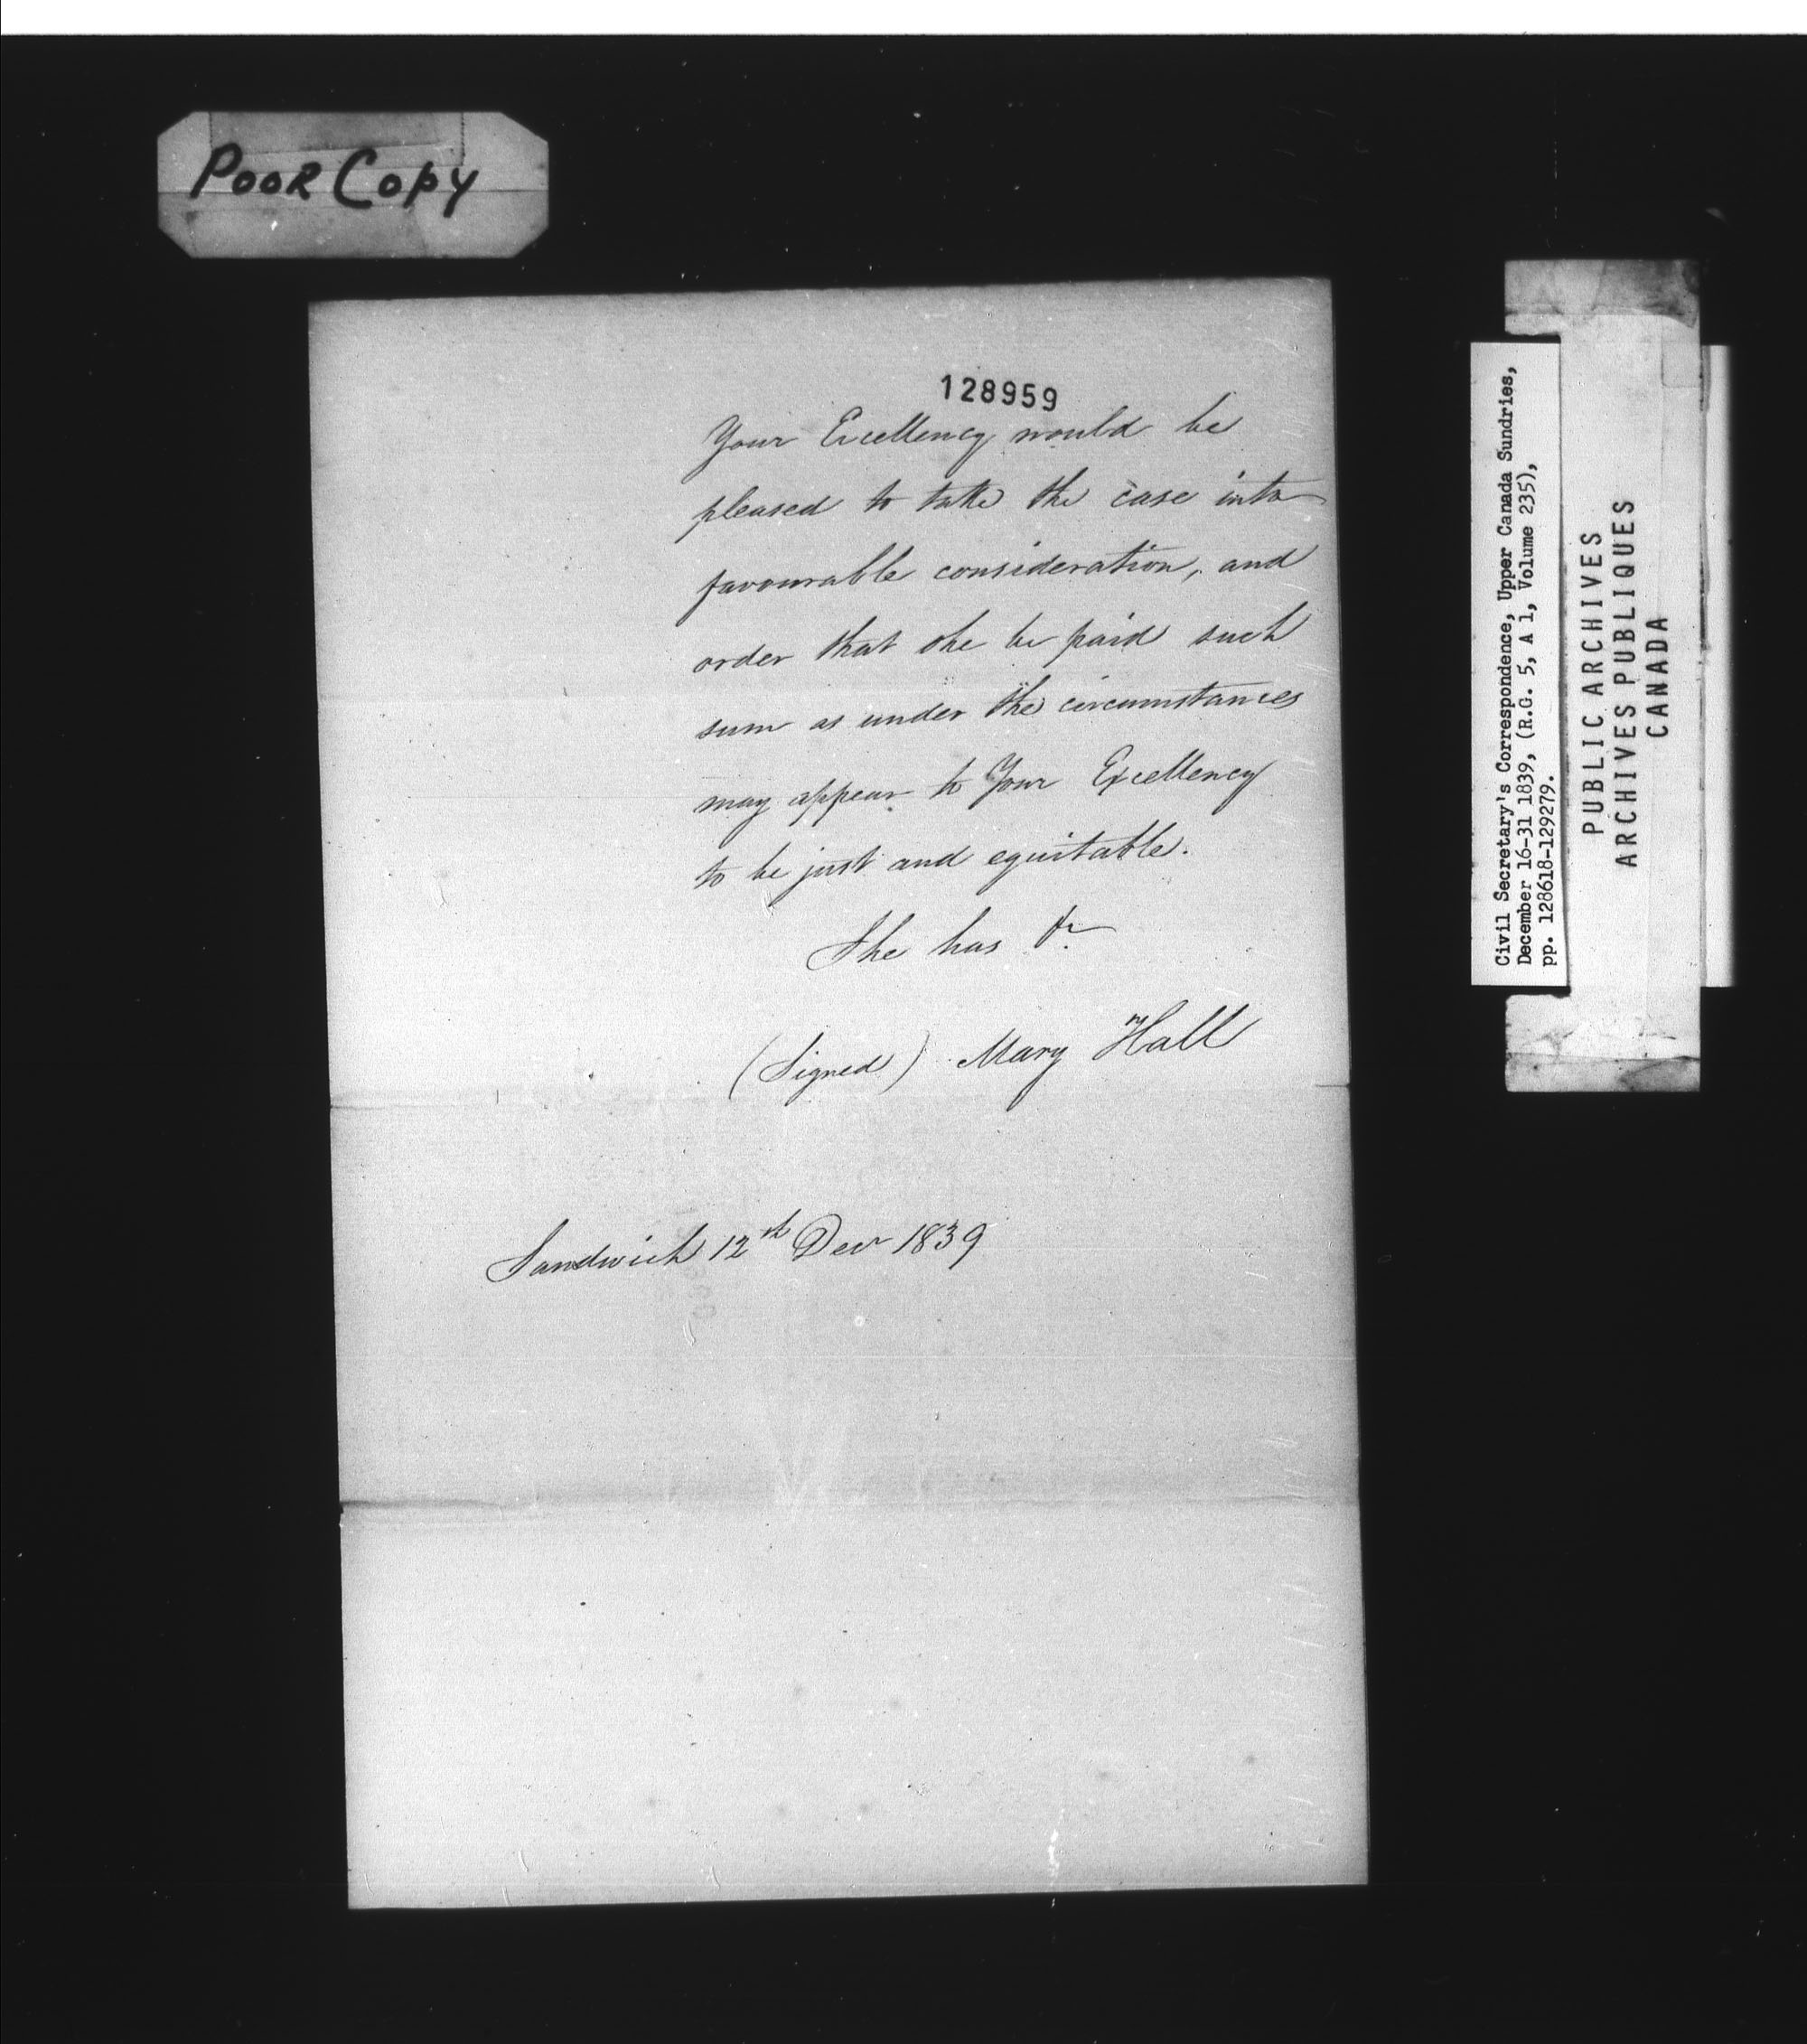 POOR COPY
128959
Your Excellency would be
pleased to take the case into
favourable consideration, and
order that she be paid such
sum as under the circumstances
may appear to Your Excellency
to be just and equitable.
She has &c
(Signed) Mary Hall
Sandwich 12th Decr 1839
Civil Secretary's Correspondence, Upper Canada Sundries,
December 16-31 1839, (R.G. 5, A 1, Volume 235),
pp. 128618-129279.
PUBLIC ARCHIVES
ARCHIVES PUBLIQUES
CANADA